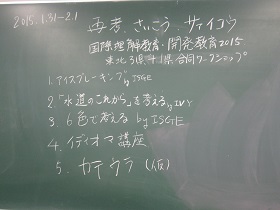 2015.1.31-2.1
再考、さいこう サイコウ
国際理解教育・開発教育2015
東北3県+1県合同ワークショップ
1. アイスブレーキング by ISGE
2. 「水道のこれから」を考える by
3. 6色で考える by ISGE
4. イディオマ講座
5. カテウラ (仮)